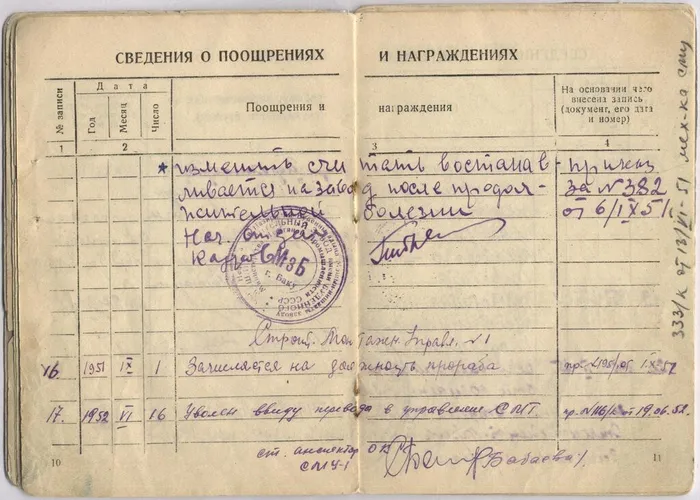 СВЕДЕНИЯ О ПООЩРЕНИЯХ И НАГРАЖДЕНИЯХ
№ записи
Дата
Год
Месяц
Число
Поощрения и награждения
На основании чего
внесена запись
(документ, его дата
и номер)
1 2 3 4
* изменить счи тать востанав-
ливается на заво д после продол-
жительной болезни
Нач. отдел
Кадров СМЗБ
приказ
за № 382
от 6/IX 51
г. Баку
Строит. Монтажн. Управл. № 1
16. 1951 IX 1 Зачисляется на должность прораба
17. 1952 VI 16 Уволен ввиду перевода в управление СМТ. пр. №116/к от 19.06.52.
ст. инспектор ОК
СМУ-1
Бабаева
333/к от 13/VI-51 мех-ка СМУ
10
11